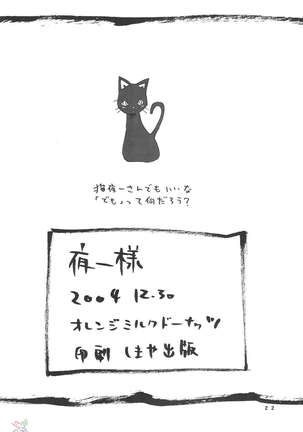 猫夜一さんでもいいな
「でも」って何だろう?
夜一様
2004 12.30
オレンジミルクドーナツ
印刷 しまや出版
22